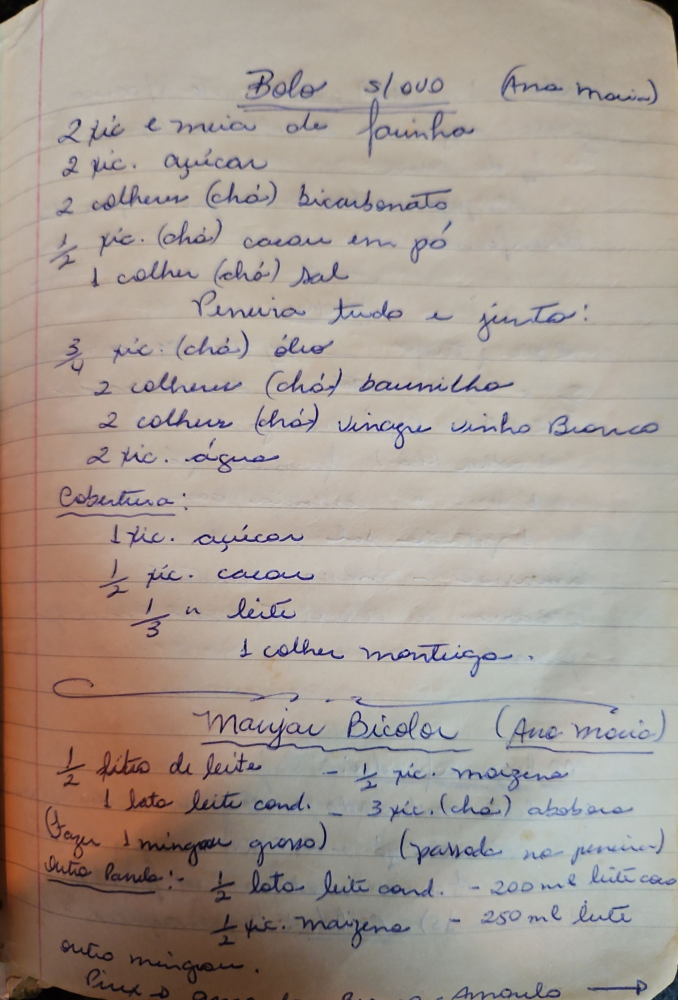 Bolo s/ovo (Ana Maria)
2 xic e meia de farinha
2 xic. açúcar
2 colheres (chá) bicarbonato
1/2 xic. (chá) cacau em pó
1 colher (chá) sal
Peneira tudo e junta:
3/4 xic. (chá) óleo
2 colheres (chá) baunilha
2 colheres (chá) vinagre vinho Branco
2 xic. água
Cobertura:
1 xic. açúcar
1/2 xic. cacau
1/3 " leite
1 colher manteiga.
Manjar Bicolor (Ana Mária)
1/2 litro de leite - 1/2 xic. maizena
1 lata leite cond. - 3 xic. (chá) abobora
(Fazer 1 mingau grosso) (passada na peneira)
Outra Panela:- 1/2 lata leite cond. - 200 ml leite coco
1/2 xic. maizena - 250 ml leite
outro mingau.